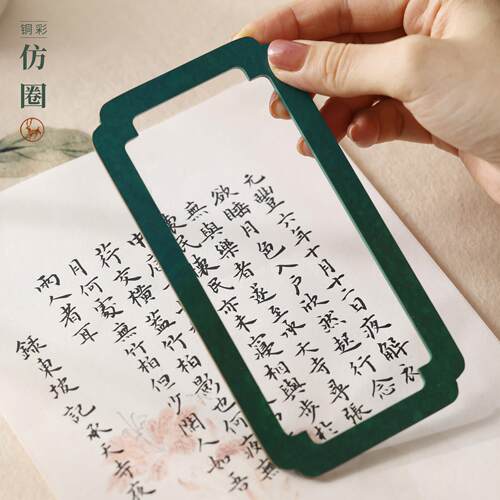 铜彩
仿圈
元豐六年十月十二日夜解衣
欲睡月色入戶欣然起行念
無與樂者遂至承天寺尋張
懷民懷民亦未寢相與步於
中庭
荇交橫蓋竹柏影也何夜無
月何處無竹柏但少閒人如吾
兩人者耳
錄東坡記承天寺夜